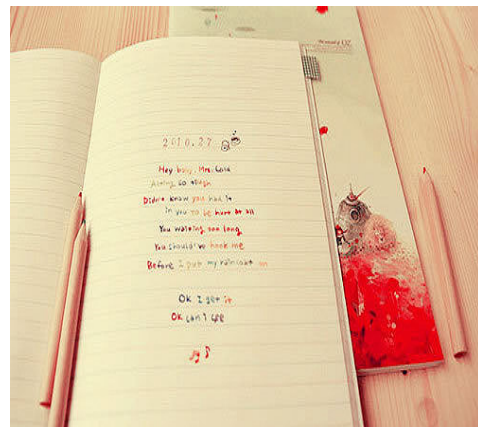 2010.27
Hey boy, Mrs. Cold
Acting so tough
Didn't know you had it
in you to be hurt at all
You waiting too long
You should've hook me
Before I put my raincoat on
OK I get it
OK can I see